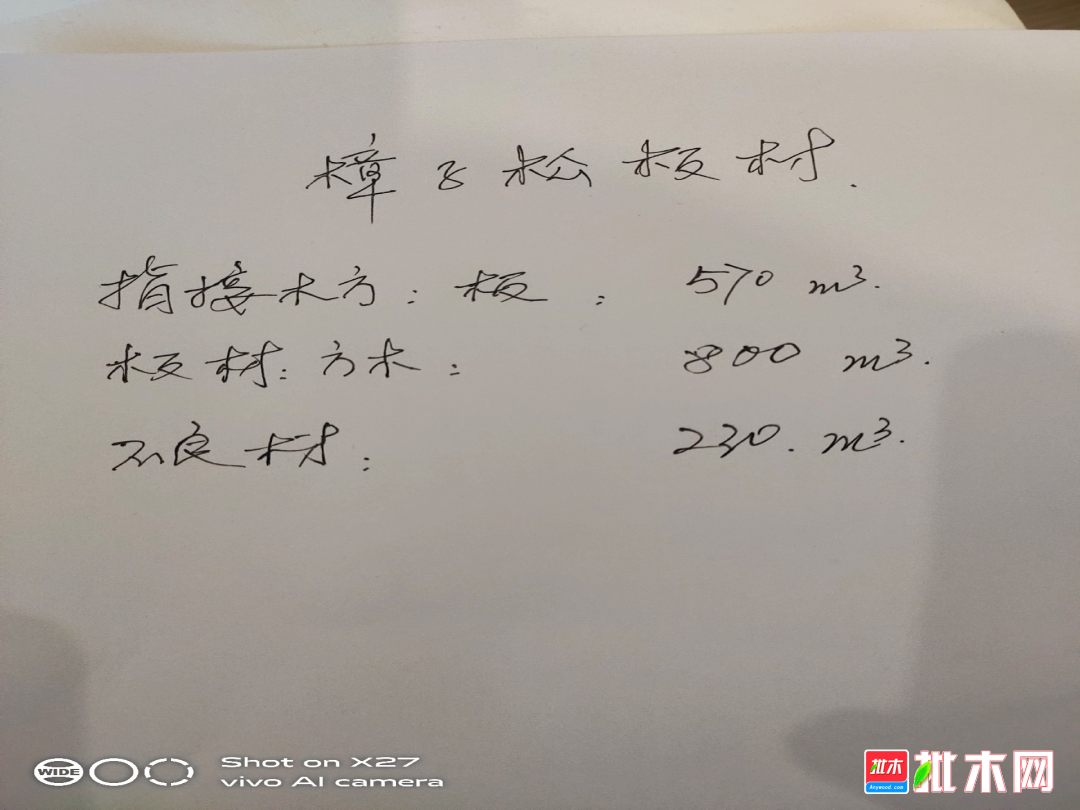 樟子松板材.
指接木方：板： 570 m³.
板材：方木： 800 m³.
不良材： 230. m³.
WIDE
Shot on X27
vivo AI camera
批木 批木网
Anywood.com